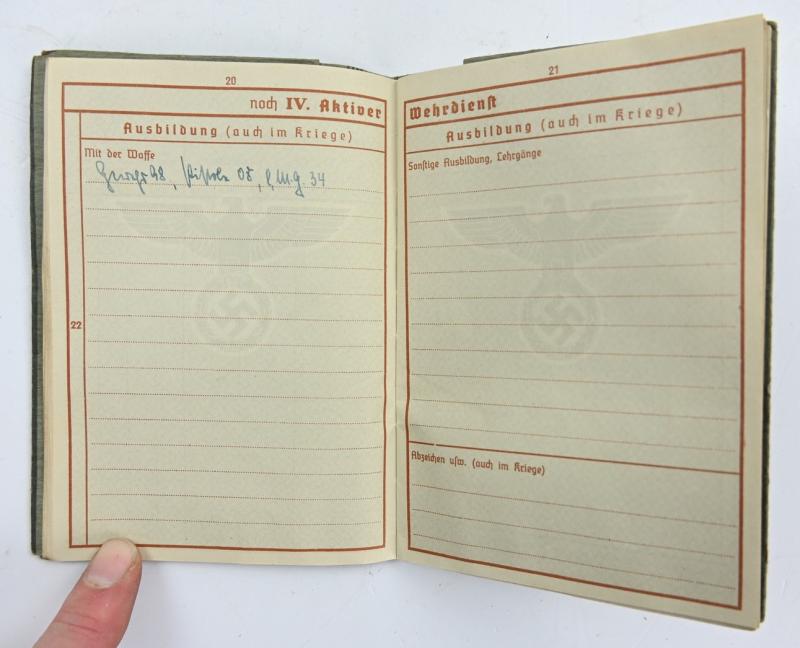 20
noch IV. Aktiver
Ausbildung (auch im Kriege)
Mit der Waffe
Gewehr 98, Pistole 08, l.M.G. 34
22
21
Wehrdienst
Ausbildung (auch im Kriege)
Sonstige Ausbildung, Lehrgänge
Abzeichen usw. (auch im Kriege)